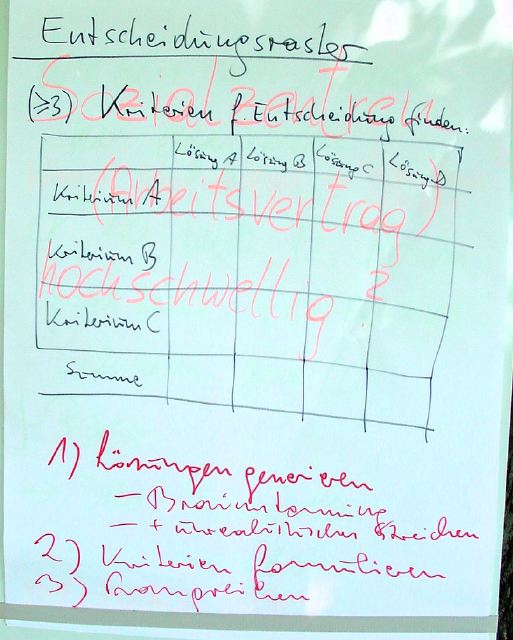 Entscheidungsraster
Sozialzentren
(≥3) Kriterien f. Entscheidung finden:
Lösung A Lösung B Lösung C Lösung D
Kriterium A
(Arbeitsvertrag)
Kriterium B
hochschwellig ?
Kriterium C
Summe
1) Lösungen generieren
– Brainstorming
– + unrealistisches streichen
2) Kriterien formulieren
3)